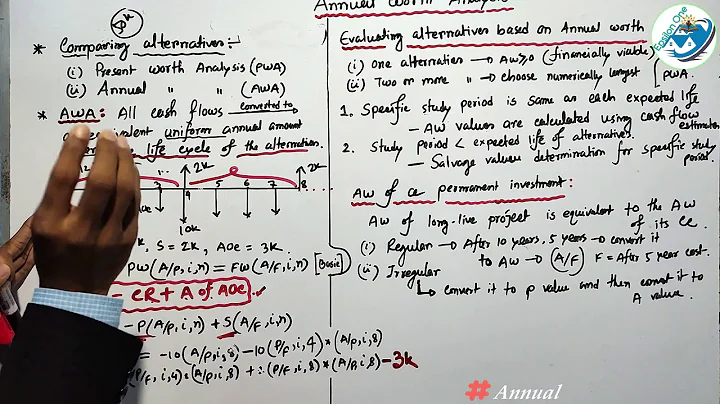 Annual Worth Analysis
* Comparing alternatives:-
(i) Present Worth Analysis (PWA)
(ii) Annual " " (AWA)
* AWA: All cash flows converted to
uniform annual amount
life cycle of the alternatives.
2k 2k
3 4 5 6 7 8
AOC 10k
k, S = 2k, AOC = 3k.
PW(A/P,i,n) = FW(A/F,i,n) [Basic]
= CR + A of AOC.
-P(A/P,i,n) + S(A/F,i,n)
= -10(A/P,i,8) -10(P/F,i,4)*(A/P,i,8)
P/F,i,4)*(A/P,i,8) + (P/F,i,8)*(A/P,i,8) -3k
Evaluating alternatives based on Annual worth
(i) one alternative → AW≥0 (financially viable)
(ii) Two or more " → choose numerically largest [PWA.
1. Specific study period is same as each expected life
- AW values are calculated using cash flow
estimates
2. Study period < expected life of alternatives.
- Salvage values determination for specific study
period.
AW of a permanent investment:
AW of long-live project is equivalent to the AW
of its CC.
(i) Regular → After 10 years, 5 years → convert it
to AW → (A/F) F = After 5 year cost.
(ii) Irregular
→ convert it to P value and then convert it to
A value.
Epsilon One
# Annual